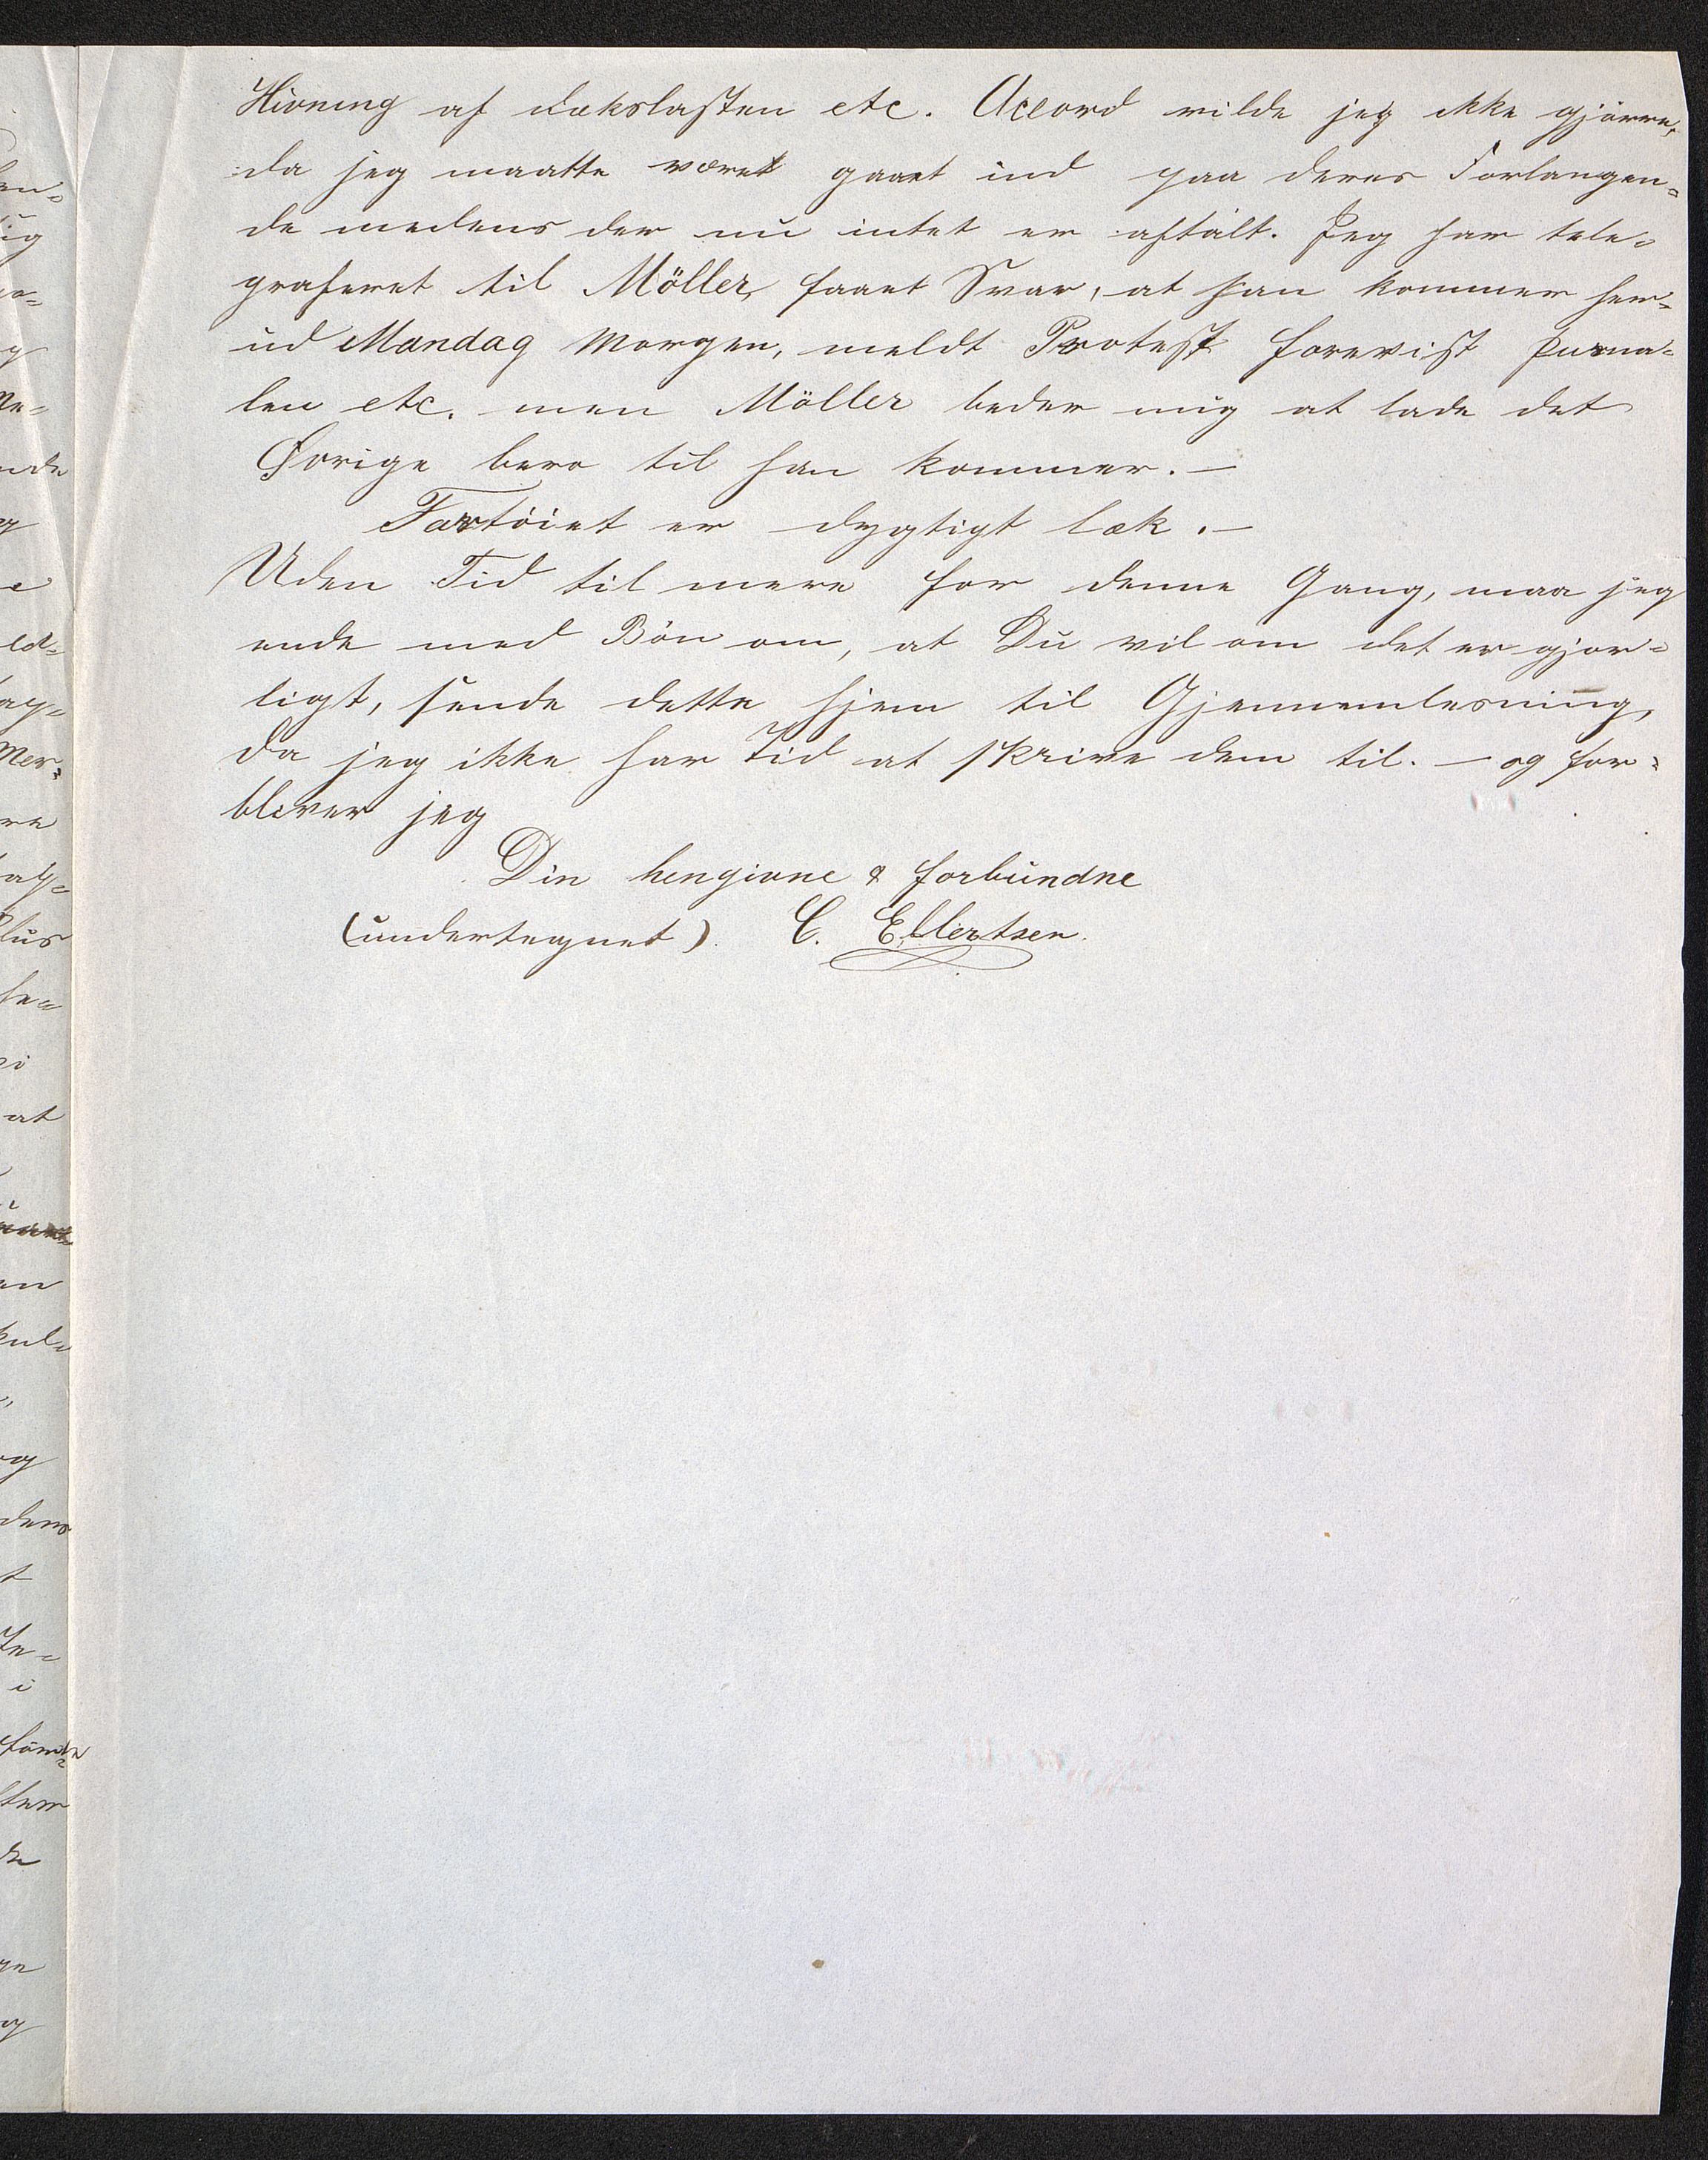 Hivning af Dækslasten etc. Accord vilde jeg ikke gjörre,
da jeg maatte været gaaet ind paa deres Forlangen=
de medens der nu intet er aftalt. Jeg har tele=
graferet til Möller, faaet Svar, at han kommer her=
ud Mandag Morgen, meldt Protest forevist Jurna=
len etc. men Möller beder mig at lade det
Øvrige bero til han kommer. —
Fartöiet er dygtigt læk. —
Uden Tid til mere for denne Gang, maa jeg
ende med Bön om, at Du vil om det er gjør=
ligt, sende dette hjem til Gjennemlesning,
da jeg ikke har Tid at skrive dem til. — og for=
bliver jeg
Din hengivne & forbundne
(undertegnet). C. Ellertsen.